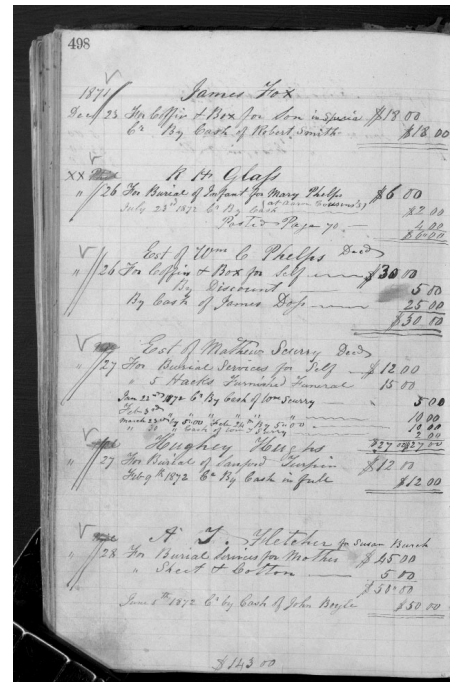 498
1871 James Fox
Dec 23 For Coffin & Box for Son in Specie $18 00
Cr By Cash of Robert Smith $18 00
XX R H Glass
" 26 For Burial of Infant for Mary Phelps $6 00
July 23rd 1872 Cr By Cash $2 00
Posted Page 70 4 00
$6 00
Est of Wm C Phelps Decd
" 26 For Coffin & Box for Self $30 00
By Discount 5 00
By Cash of James Doss 25 00
$30 00
Est of Mathew Scurry Decd
" 27 For Burial Services for Self $12 00
" 5 Hacks Furnished Funeral 15 00
Jan 22nd 1872 Cr By Cash of Wm Scurry 5 00
Feb 3rd " " " " 10 00
March 23rd By 5.00 Feb 24th By 5.00 10 00
" " Cash of Wm Scurry 2 00
Hughey Hughs $27 00 $27 00
" 27 For Burial of Sanford Turpin $12 00
Feb 9th 1872 Cr By Cash in full $12 00
A T. Fletcher for Susan Burch
" 28 For Burial Services for Mother $45 00
" Sheet & Cotton 5 00
$50 00
June 5th 1872 Cr by Cash of John Boyle $50 00
$143 00